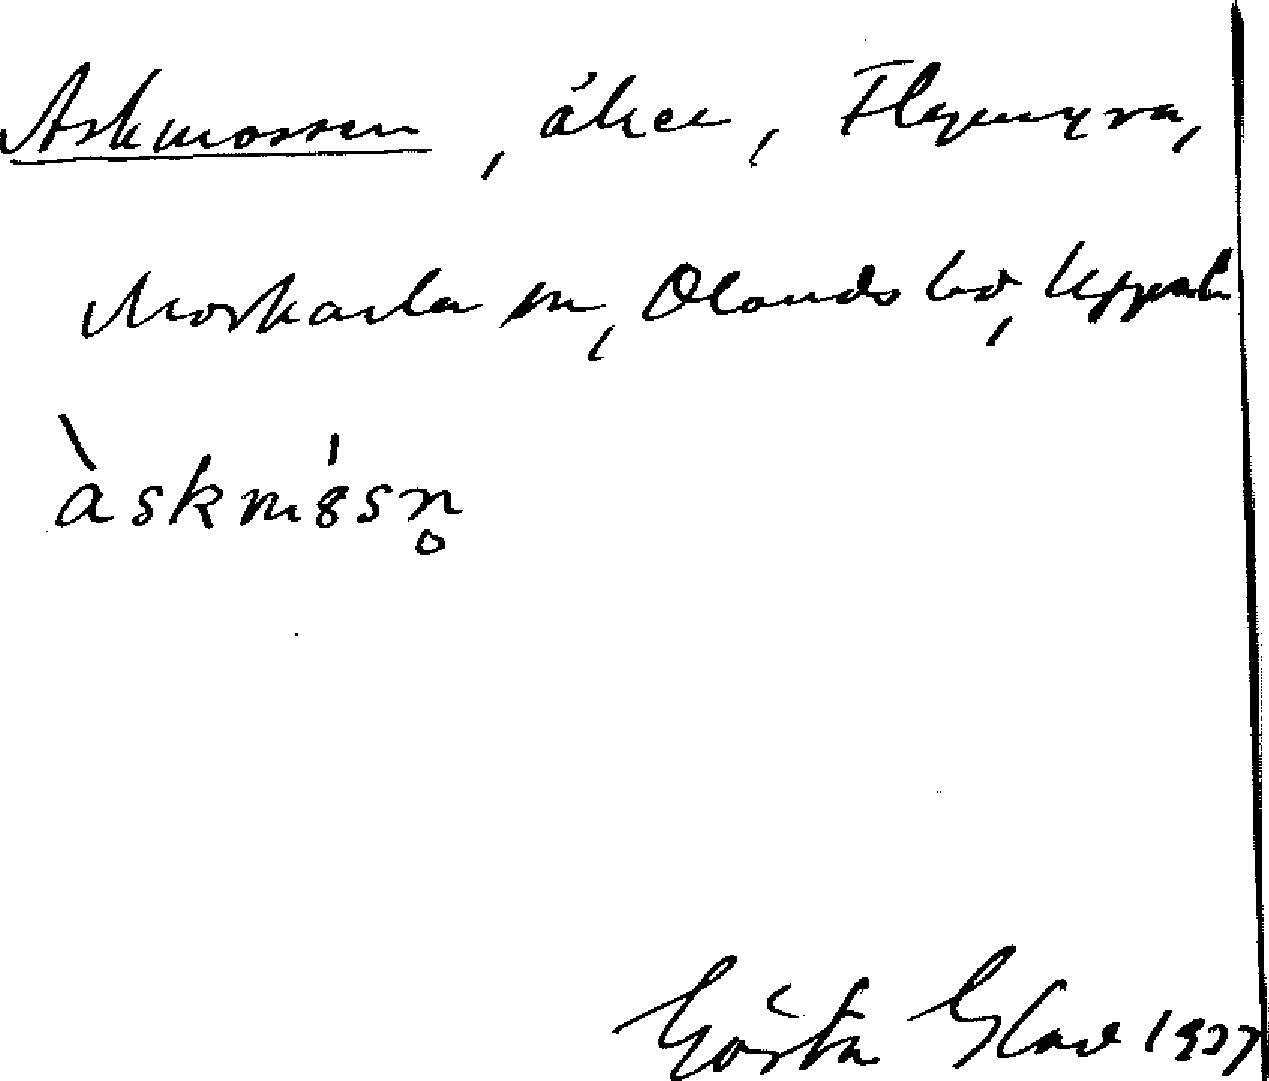 Askmossen, åker, Flymyra,
Morkarla sn, Olands hd, Uppsala
àskmòsn̥
Gösta Glad 1937